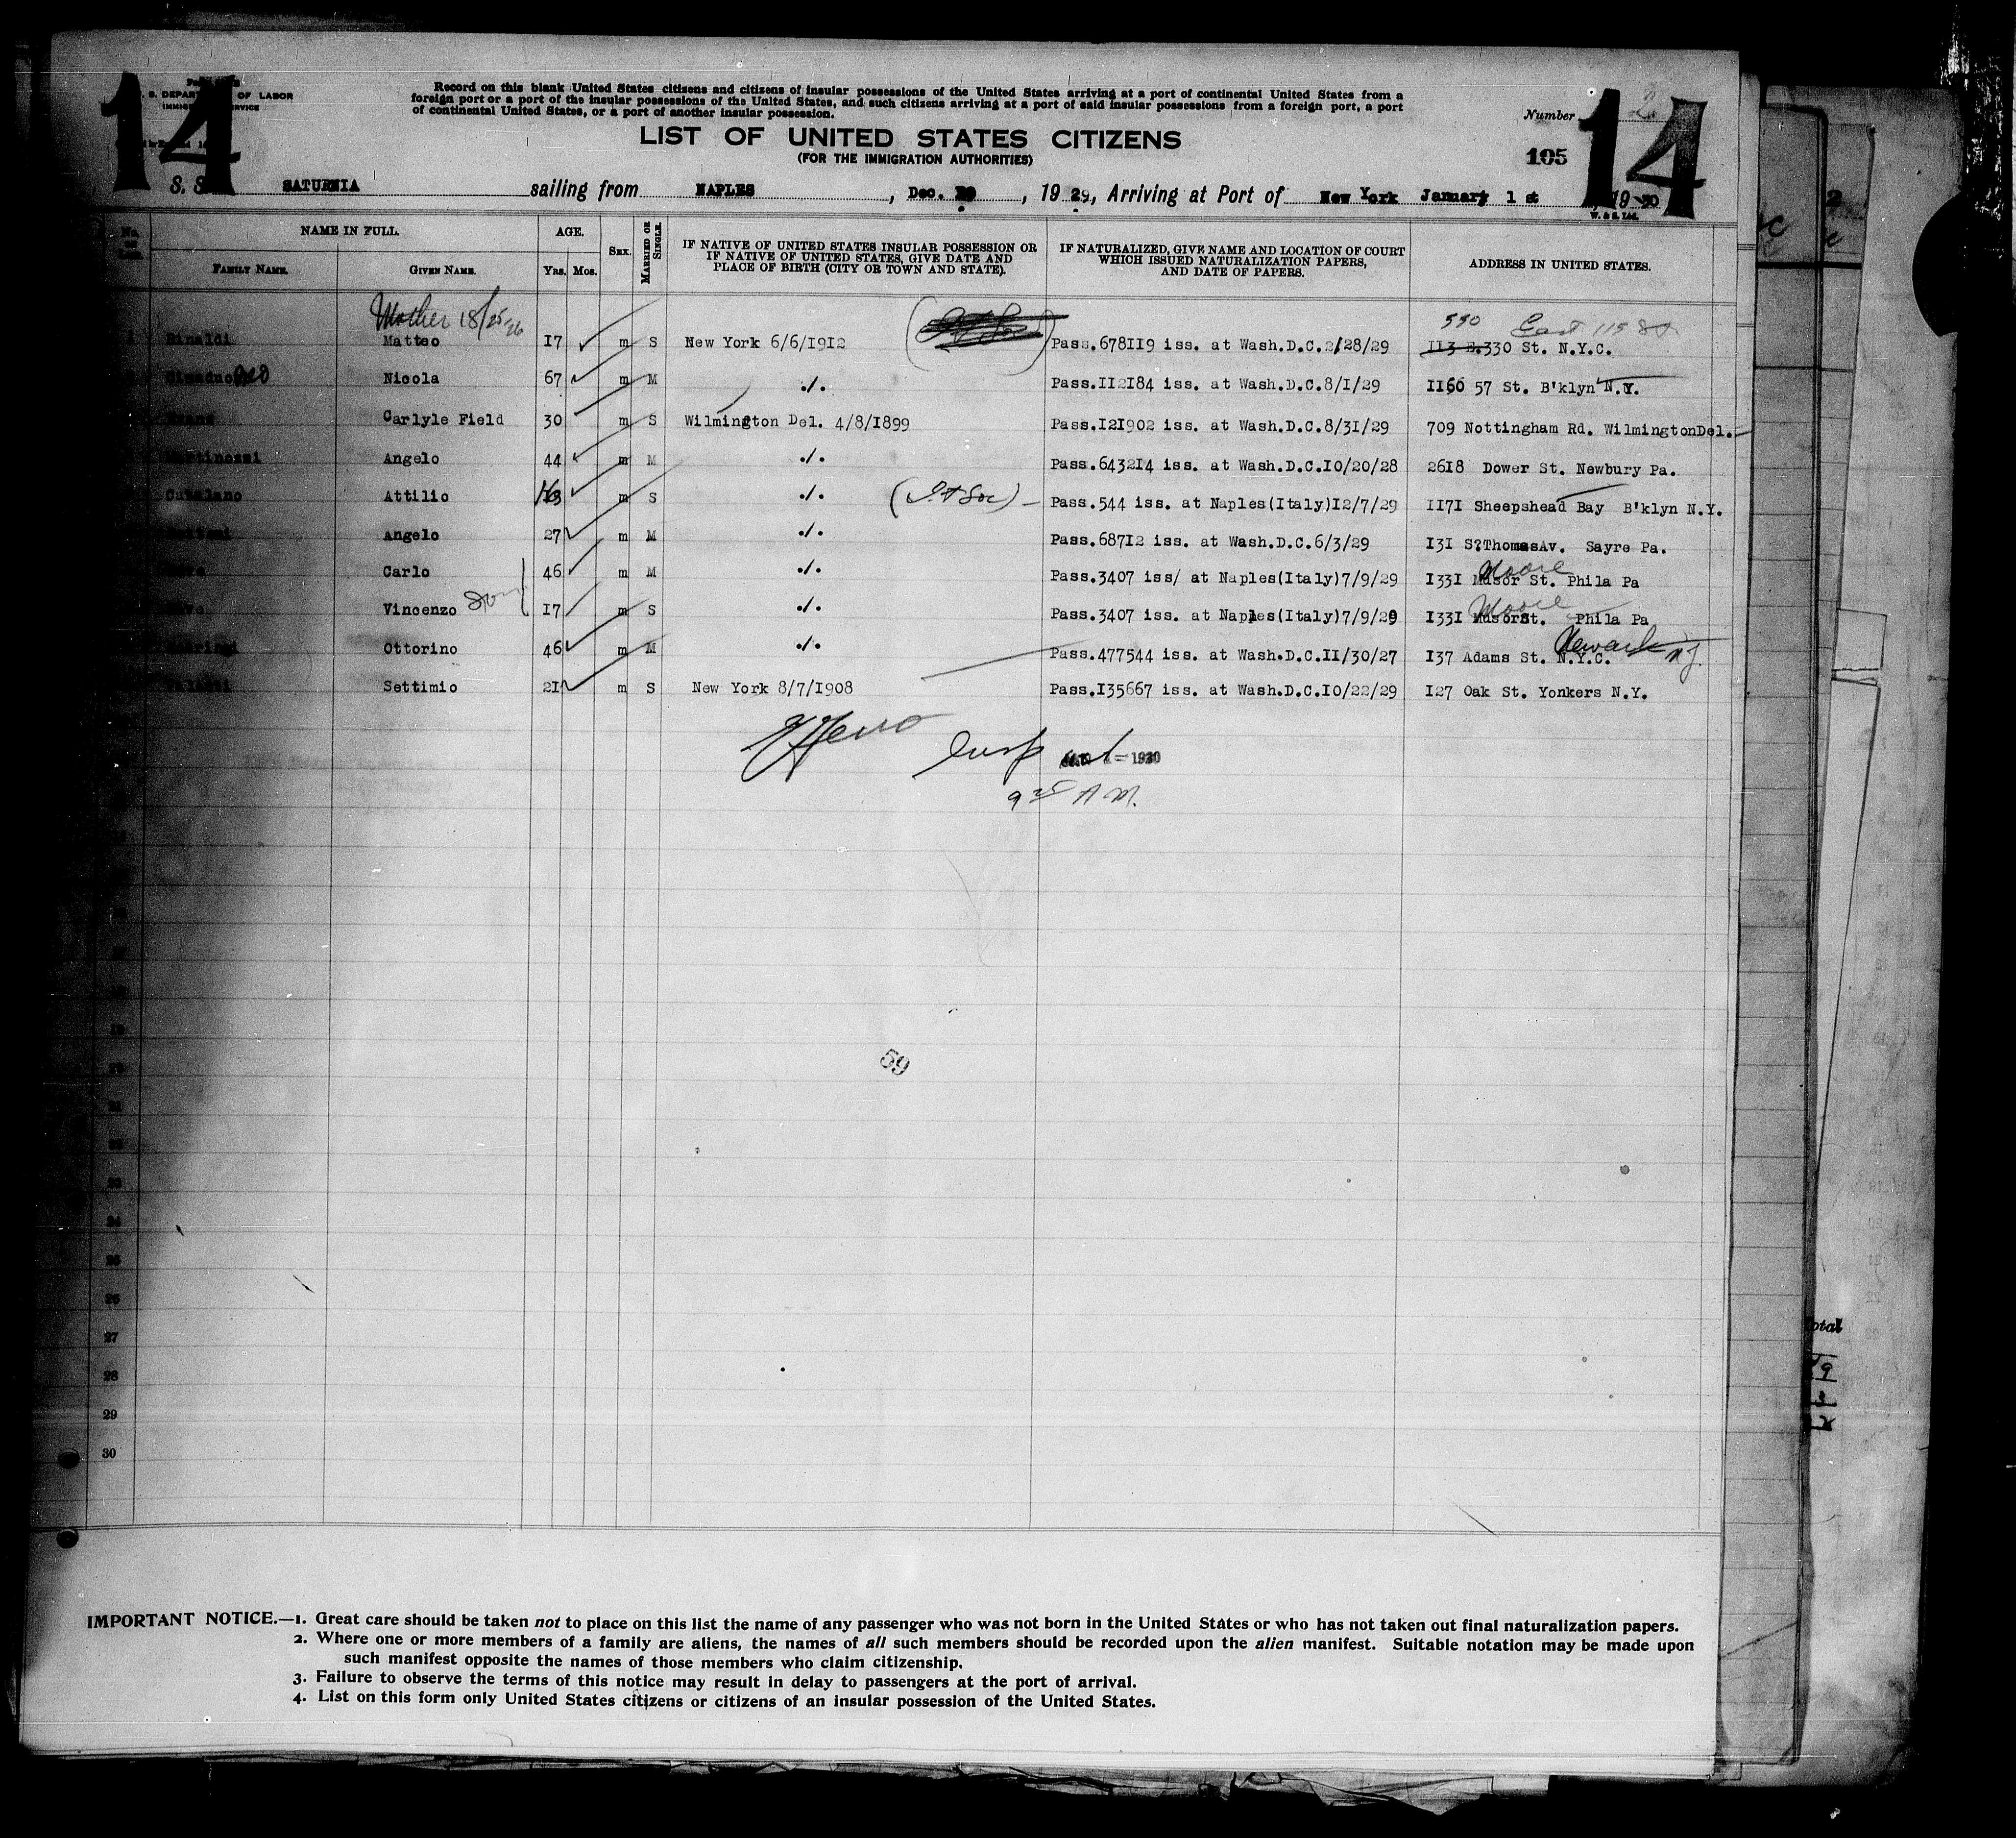 14
14
U. S. DEPARTMENT OF LABOR
IMMIGRATION SERVICE
Record on this blank United States citizens and citizens of insular possessions of the United States arriving at a port of continental United States from a
foreign port or a port of the insular possessions of the United States, and such citizens arriving at a port of said insular possessions from a foreign port, a port
of continental United States, or a port of another insular possession.
Number
LIST OF UNITED STATES CITIZENS
(FOR THE IMMIGRATION AUTHORITIES)
105
S. S. SATURNIA sailing from NAPLES, Dec. 19 29, Arriving at Port of New York January 1 st 19
W. & S. Ltd.
NAME IN FULL. AGE. SEX. MARRIED OR SINGLE. IF NATIVE OF UNITED STATES INSULAR POSSESSION OR IF NATIVE OF UNITED STATES, GIVE DATE AND PLACE OF BIRTH (CITY OR TOWN AND STATE). IF NATURALIZED, GIVE NAME AND LOCATION OF COURT WHICH ISSUED NATURALIZATION PAPERS, AND DATE OF PAPERS. ADDRESS IN UNITED STATES.
No. FAMILY NAME. GIVEN NAME. YRS. MOS.
Mother 18/25/26 330 East 115
Rinaldi Matteo 17 m S New York 6/6/1912 Pass.678119 iss. at Wash.D.C.2/28/29 113 E.330 St. N.Y.C.
Nicola 67 m M ./. Pass.112184 iss. at Wash.D.C.8/1/29 1160 57 St. B'klyn N.Y.
Evans Carlyle Field 30 m S Wilmington Del. 4/8/1899 Pass.121902 iss. at Wash.D.C.8/31/29 709 Nottingham Rd. WilmingtonDel.
Martinozzi Angelo 44 m M ./. Pass.643214 iss. at Wash.D.C.10/20/28 2618 Dower St. Newbury Pa.
Catalano Attilio 16 m S ./. Pass.544 iss. at Naples(Italy)12/7/29 1171 Sheepshead Bay B'klyn N.Y.
Angelo 27 m M ./. Pass.68712 iss. at Wash.D.C.6/3/29 131 S?ThomasAv. Sayre Pa.
Carlo 46 m M ./. Pass.3407 iss/ at Naples(Italy)7/9/29 1331 Moore St. Phila Pa
Vincenzo Son 17 m S ./. Pass.3407 iss. at Naples(Italy)7/9/29 1331 Moore St. Phila Pa
Ottorino 46 m M ./. Pass.477544 iss. at Wash.D.C.11/30/27 137 Adams St. N.Y.C. Newark N.J.
Settimio 21 m S New York 8/7/1908 Pass.135667 iss. at Wash.D.C.10/22/29 127 Oak St. Yonkers N.Y.
Insp JAN 1 - 1930
9 25 A M.
59
19
20
21
22
23
24
25
26
27
28
29
30
IMPORTANT NOTICE.—1. Great care should be taken not to place on this list the name of any passenger who was not born in the United States or who has not taken out final naturalization papers.
2. Where one or more members of a family are aliens, the names of all such members should be recorded upon the alien manifest. Suitable notation may be made upon
such manifest opposite the names of those members who claim citizenship.
3. Failure to observe the terms of this notice may result in delay to passengers at the port of arrival.
4. List on this form only United States citizens or citizens of an insular possession of the United States.